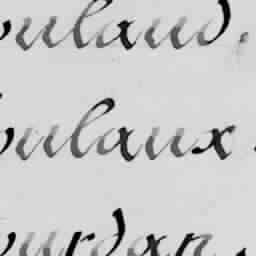 oulaud.
oulaux.
ourdan.